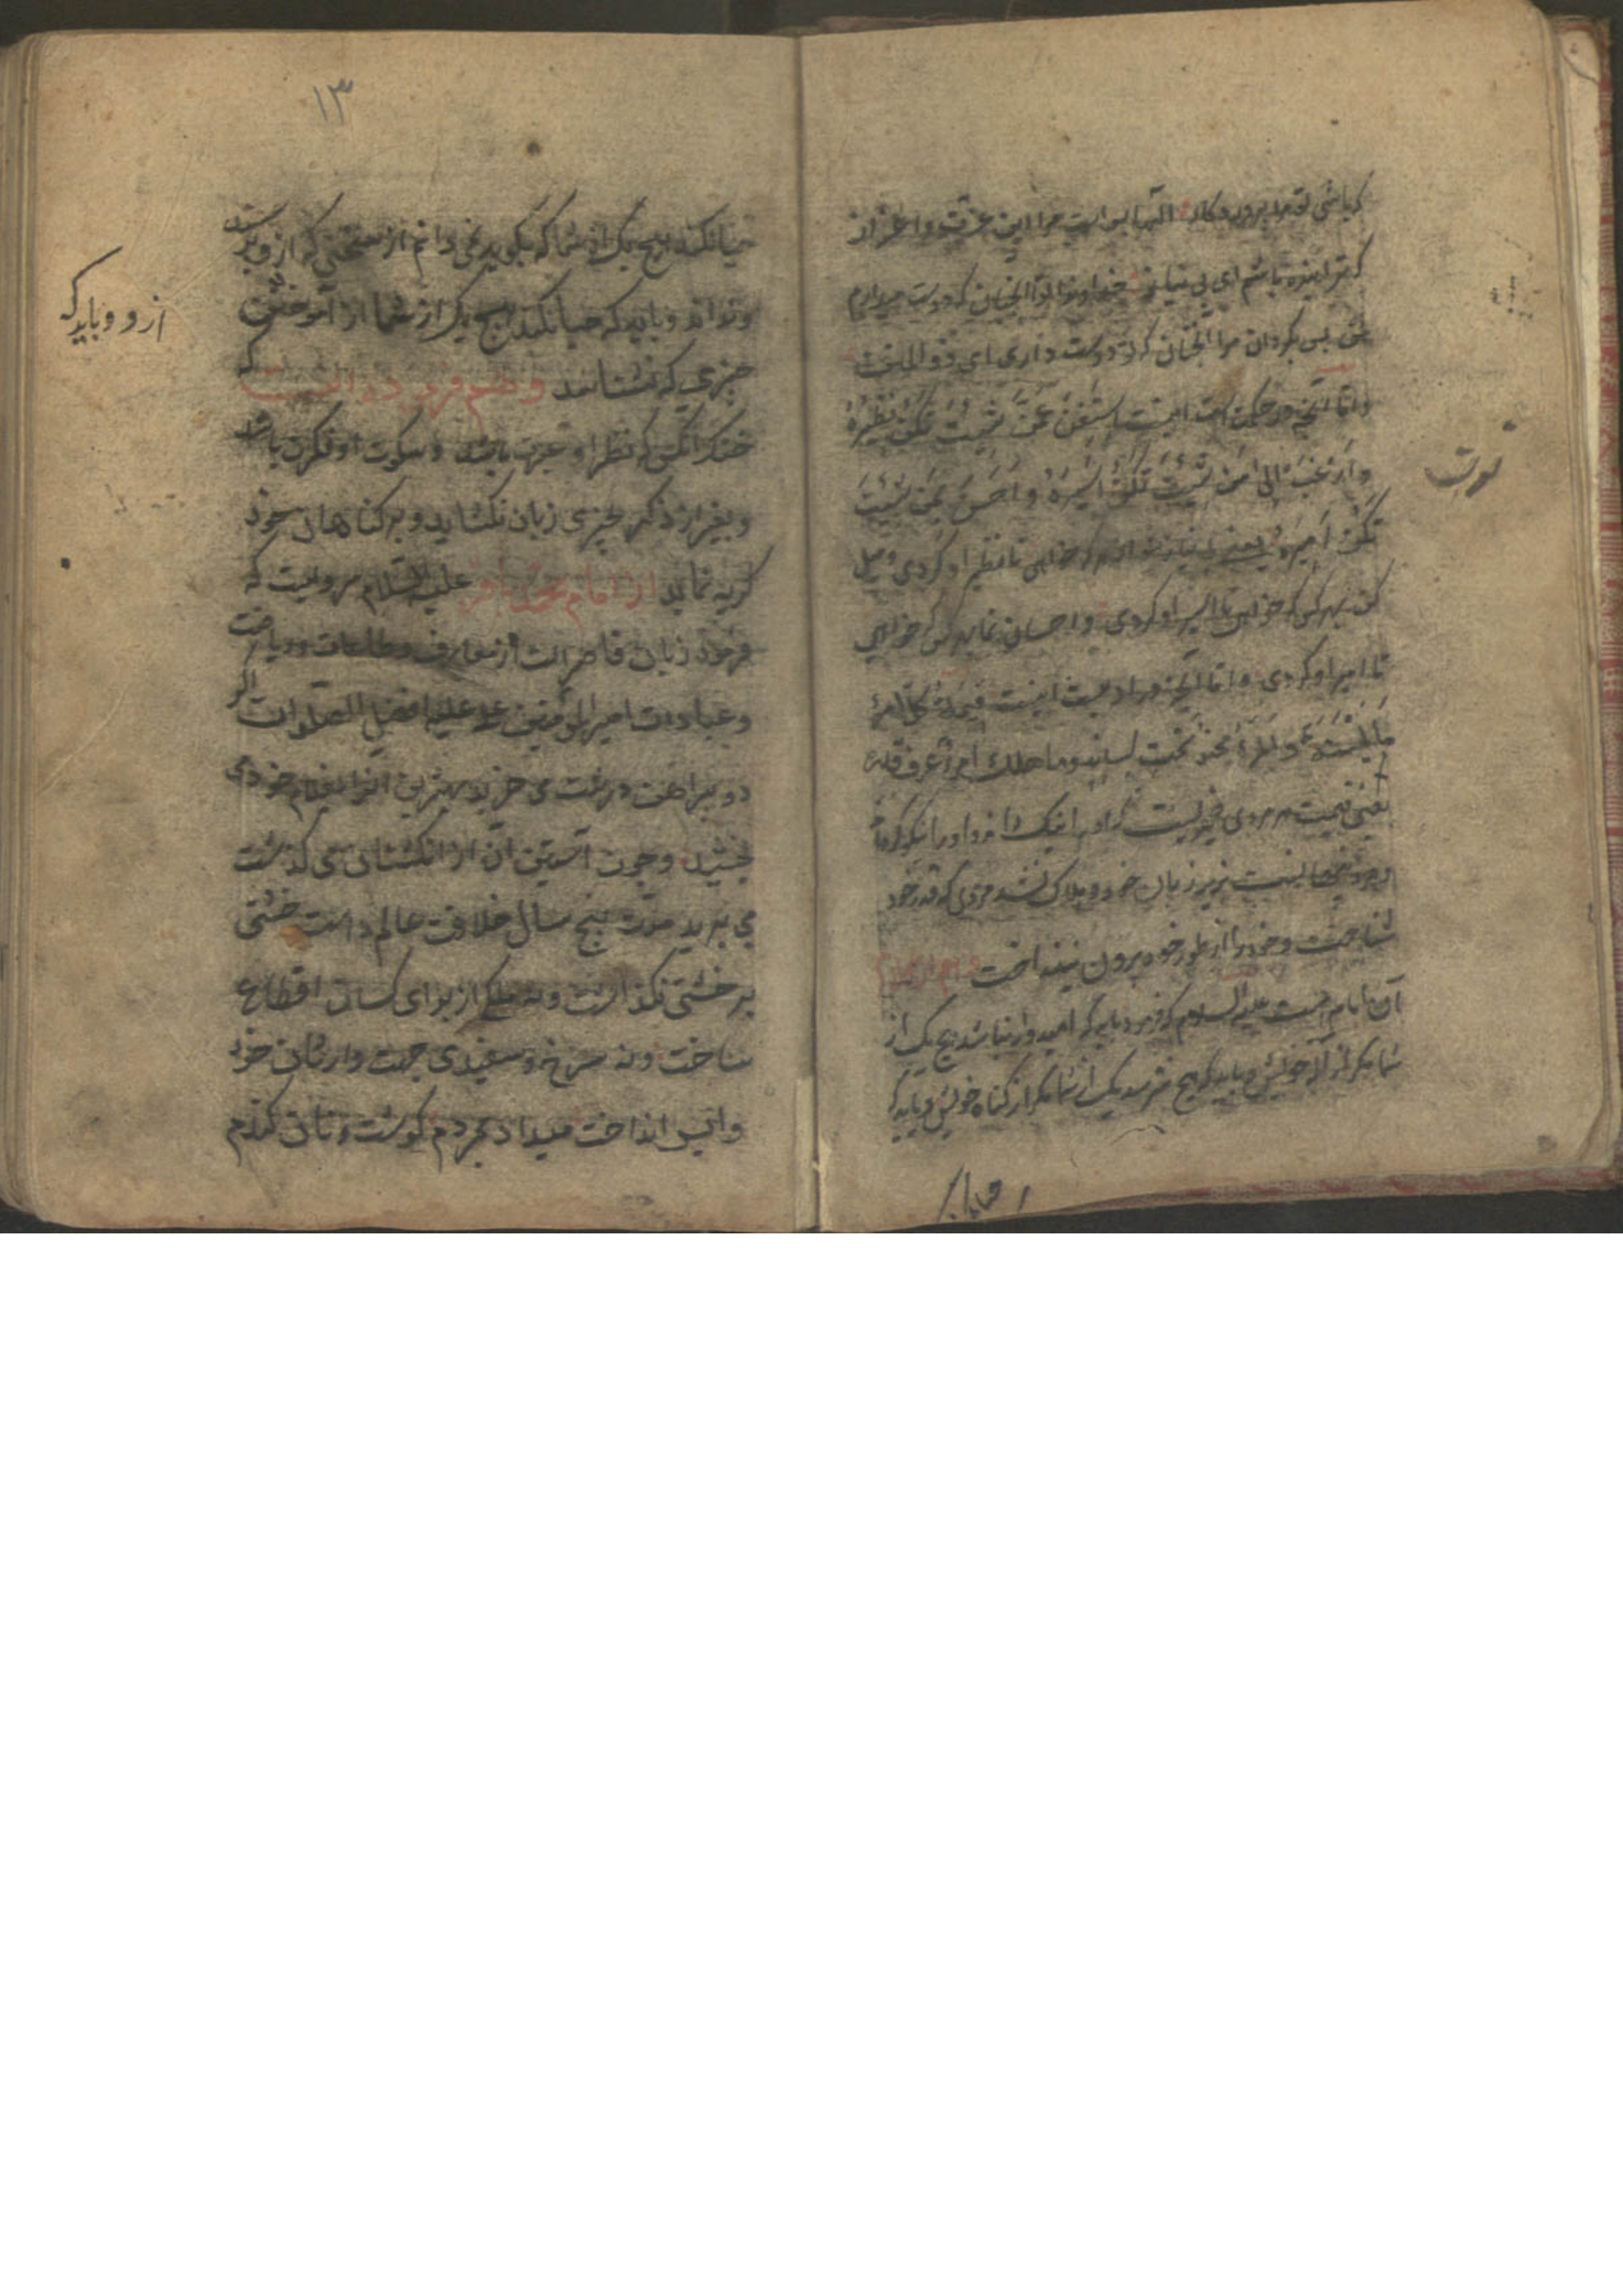 که باشی تو مرا پروردکار الها بس است مرا این عزت و اعزاز
که ترا بنده باشم ای بی نیاز خداوندا تو آنچنان که دوست میدارم
من پس بکردان مرا آنچنان که تو دوست داری ای ذو المنن
و اما آنچه در حکمت است اینست اِستَغنِ عَمَّن شِئتَ تَکُن نَظیرَهُ
وَارغَب اِلی مَن شِئتَ تَکُن اَسیرَهُ وَ اَحسِن بِمَن شِئتَ
تَکُن اَمیرَهُ یعنی بی نیاز شو از هر که خواهی تا نظیر او کردی و میل
کن بهر کس که خواهی تا اسیر او کردی و احسان نمای بهر کس که خواهی
تا امیر او کردی و اما آنچه در ادبست اینست قیمة کل امرءٍ
ما یحسنه و المرء مخبو تحت لسانه و ما هلک امرء عرف قدره
یعنی قیمت هر مردی چیزیست که او را نیک داند و او را نیکو کرداند
و مرد پنهانیست بزیر زبان خود و هلاک نشد مردی که قدر خود
شناخت و خود را از طور خود برون نینداخت
آن امام امت علیه السلام که فرمود باید که امیدوار نباشد هیچ یک از
شما مکر از اله خویش و باید که هیچ نترسد یک از شما مکر از کناه خویش و باید که
نوبت
و باید که
۱۳
حیا نکند هیچ یک از شما که بکوید نمی دانم از سخنی که ازو پرسند
و نداند و باید که حیا نکند هیچ یک از شما از آموختن
چیزی که نشناسد و هم فرموده است که
خنک آنکس که نظر او عبرت باشد و سکوت او فکرت باشد
و بغیر از ذکر بچیزی زبان نکشاید و بر کناهان خود
کریه نماید از امام محمد باقر علیه السلام مرویست که
فرمود زبان قاصر است از معارف و طاعات و ریاضت
و عبادات امیر المؤمنین علی علیه افضل الصلوات اکر
دو پیراهن درشت می خرید بهترین آنرا بغلام خود می
بخشید و چون آستین آن از انکشتان می کذشت
می برید مدت پنج سال خلافت عالم داشت خشتی
بر خشتی نکذاشت و نه ملکی از برای کسان اقطاع
ساخت و نه سرخ و سفیدی جهت وارثان خود
واپس انداخت میداد بمردم کوشت و نان کندم
ازو و باید که